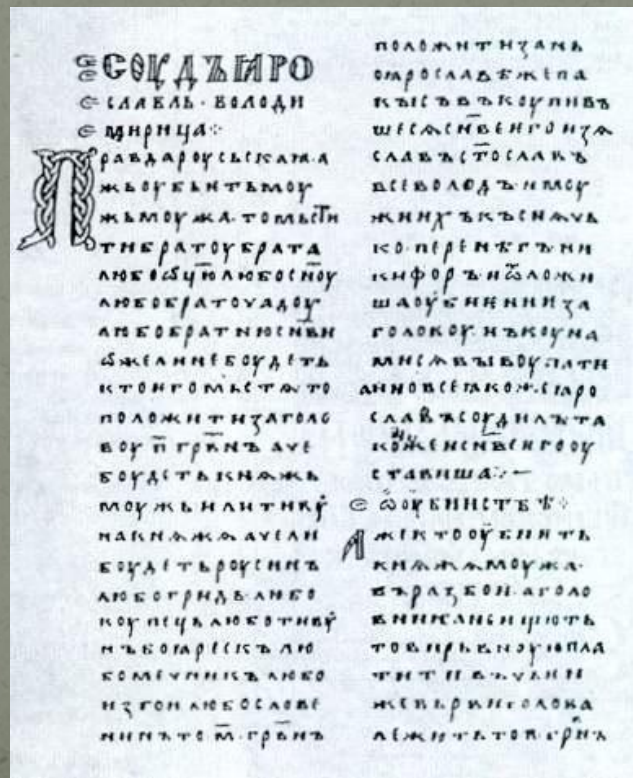 СОУДЪꙖРО
СЛАВЛЬ·ВОЛОДИ
МИРИЦА⁘
Правдароусьскаꙗа
жьоубьѥтьмоу
жьмоужа·томьсти
тибратоубрата
любоѿц҃юлюбосн҃оу
любобратоучадоу
любобратнюсн҃ви
ѡжелинебоудеть
ктоѥгомьстѧто
положитизаголо
воуп҃грв҃нъаче
боудетькнѧжь
моужьилитиву
накнѧжѧачели
боудетьроусинъ
любогридьлюбо
коупецьлюботиву
нъбоꙗрескълю
бомечникълюбо
изгоилюбослове
нинъто·м҃·грв҃нъ
положитизань
поꙗрославѣжепа
кысъвъкоупивъ
шесѧсн҃веѥгоизѧ
славъст҃ославъ
всеволодъимоу
жиихъкъснѧчь
ко·перенѣгъни
кифоръиѿложи
шаоубиѥниѥза
головоунъкоуна
мисѧвыкоупати
аиновсеꙗкожеꙗро
славъсоудилъта
коженсн҃веѥгооу
ставиша⁘
ѡоубииствѣ⁘
Ажектооубиѥть
кнѧжѧмоужа·
въразбоиаголо
вникаищють
товирьвноуюпла
титивъчьѥи
жевьрвиголова
лежитьтоп҃грв҃нъ